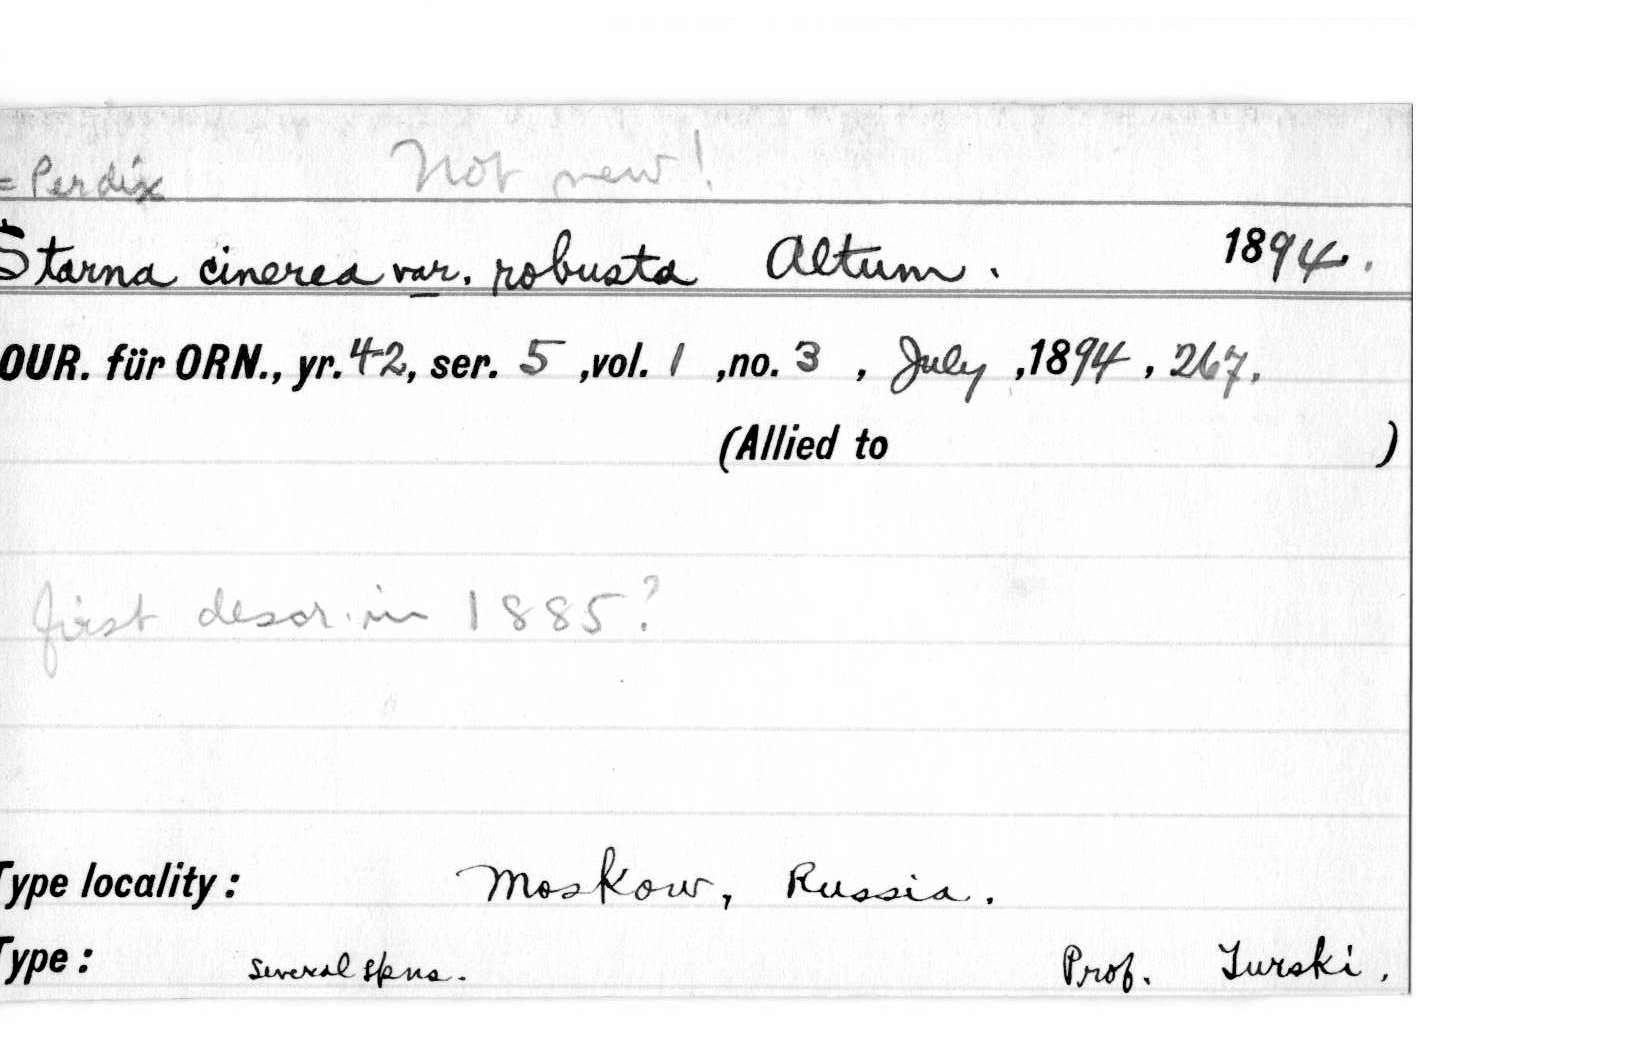 = Perdix Not new!
Starna cinerea var. robusta Altum. 1894.
OUR. für ORN., yr. 42, ser. 5, vol. 1, no. 3, July, 1894, 267.
(Allied to )
first descr. in 1885?
Type locality: Moskow, Russia.
Type: several spns. Prof. Turski.